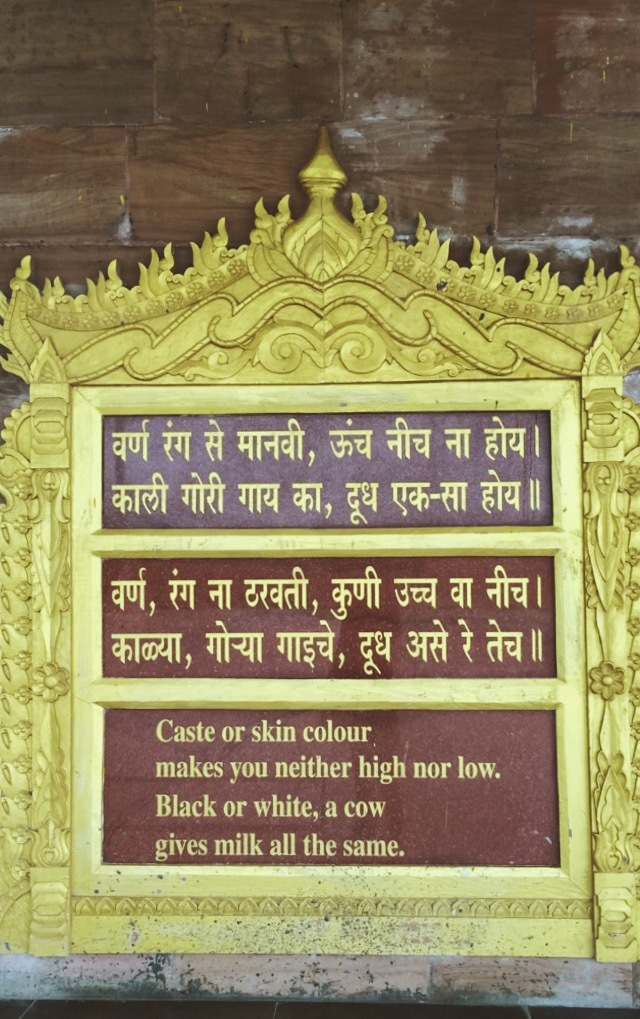 वर्ण रंग से मानवी, ऊंच नीच ना होय।
काली गोरी गाय का, दूध एक-सा होय॥
वर्ण, रंग ना ठरवती, कुणी उच्च वा नीच।
काळ्या, गोऱ्या गाइचे, दूध असे रे तेच॥
Caste or skin colour
makes you neither high nor low.
Black or white, a cow
gives milk all the same.